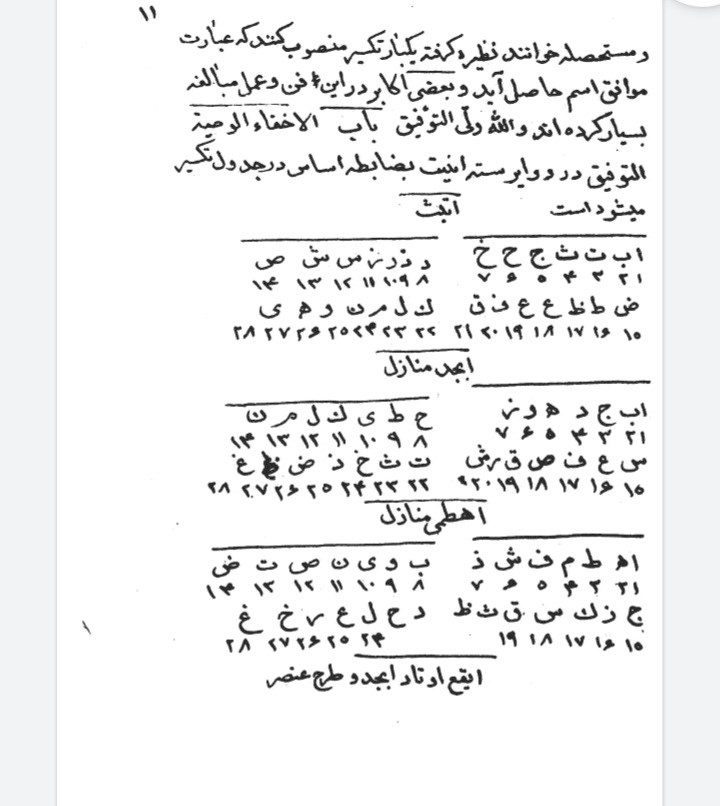 ۱۱
و مستحصله خوانند نظیره گرفته یکبار تکسیر منصوب کنند که عبارت
موافق اسم حاصل آید و بعضی اکابر در این فن و عمل مبالغه
بسیار کرده اند والله ولی التوفیق باب الاخفاء الوصیة
التوفیق در و وایر سته اینیت بضابطه اساس در جدول تکسیر
میشود است ابتث
ا ب ت ث ج ح خ د ذ ر ز س ش ص
۱ ۲ ۳ ۴ ۵ ۶ ۷ ۸ ۹ ۱۰ ۱۱ ۱۲ ۱۳ ۱۴
ض ط ظ ع غ ف ق ك ل م ن و ه ی
۱۵ ۱۶ ۱۷ ۱۸ ۱۹ ۲۰ ۲۱ ۲۲ ۲۳ ۲۴ ۲۵ ۲۶ ۲۷ ۲۸
ابجد منازل
ا ب ج د ه و ز ح ط ی ك ل م ن
۱ ۲ ۳ ۴ ۵ ۶ ۷ ۸ ۹ ۱۰ ۱۱ ۱۲ ۱۳ ۱۴
س ع ف ص ق ر ش ت ث خ ذ ض ظ غ
۱۵ ۱۶ ۱۷ ۱۸ ۱۹ ۲۰ ۲۲ ۲۳ ۲۴ ۲۵ ۲۶ ۲۷ ۲۸
اهطمی منازل
ا ه ط م ف ش ذ ب و ی ن ص ت ض
۱ ۲ ۳ ۴ ۵ ۶ ۷ ۸ ۹ ۱۰ ۱۱ ۱۲ ۱۳ ۱۴
ج ز ك س ق ث ظ د ح ل ع ر خ غ
۱۵ ۱۶ ۱۷ ۱۸ ۱۹ ۲۴ ۲۵ ۲۶ ۲۷ ۲۸
ایقع اوتاد ابجد و طرح عنصر